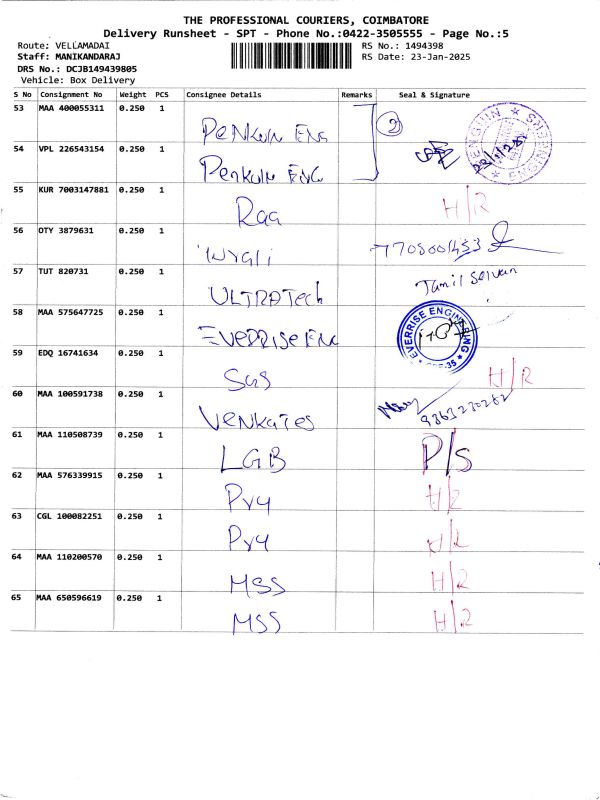 THE PROFESSIONAL COURIERS, COIMBATORE
Delivery Runsheet - SPT - Phone No.:0422-3505555 - Page No.:5
Route: VELLAMADAI RS No.: 1494398
Staff: MANIKANDARAJ RS Date: 23-Jan-2025
DRS No.: DCJB149439805
Vehicle: Box Delivery
S No Consignment No Weight PCS Consignee Details Remarks Seal & Signature
53 MAA 400055311 0.250 1 Penkuin Eng 2
54 VPL 226543154 0.250 1 Penkuin Eng
PENGUIN ENGINEERS
55 KUR 7003147881 0.250 1 Raa H/R
56 OTY 3879631 0.250 1
57 TUT 820731 0.250 1 ULTRATech Tamil Selvan
58 MAA 575647725 0.250 1 EVERRISE Eng
EVERRISE ENGINEERING
59 EDQ 16741634 0.250 1 SGS H/R
60 MAA 100591738 0.250 1 Venkates
61 MAA 110508739 0.250 1 LGB P/S
62 MAA 576339915 0.250 1 Pry H/R
63 CGL 100082251 0.250 1 Pry H/R
64 MAA 110200570 0.250 1 MSS H/R
65 MAA 650596619 0.250 1 MSS H/R